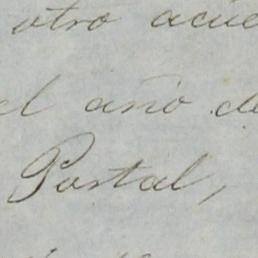 otro acue
el año de
Portal,